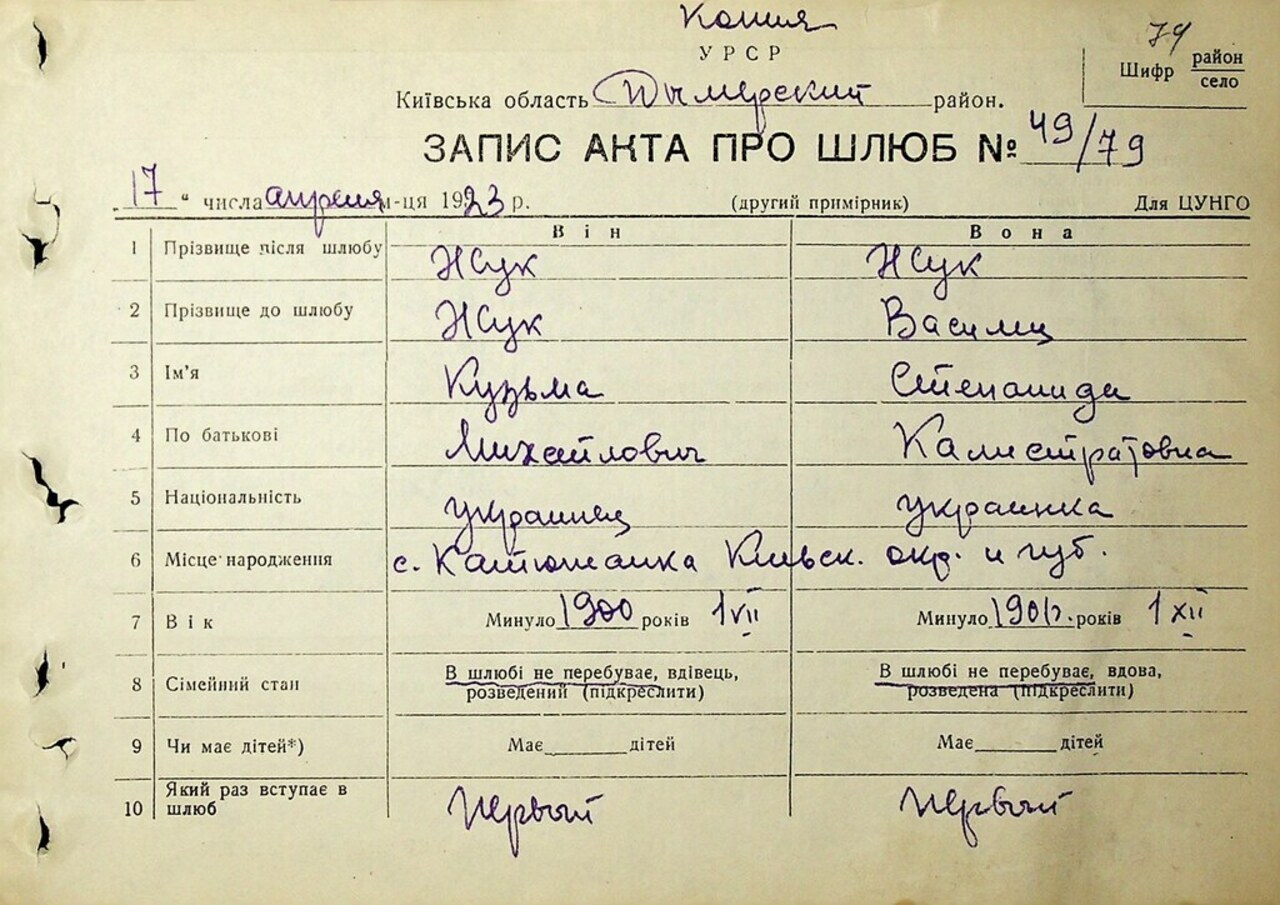 Копия
УРСР
79
Шифр район
село
Київська область Дымерский район.
ЗАПИС АКТА ПРО ШЛЮБ № 49/79
„17“ числа апреля м-ця 1923 р. (другий примірник) Для ЦУНГО
Він Вона
1 Прізвище після шлюбу Жук Жук
2 Прізвище до шлюбу Жук Василец
3 Ім'я Кузьма Степанида
4 По батькові Михайлович Калистратовна
5 Національність украинец украинка
6 Місце народження с. Катюжанка Киевск. окр. и губ.
7 Вік Минуло 1900 років 1 VII Минуло 1901 г. років 1 XII
8 Сімейний стан В шлюбі не перебуває, вдівець, В шлюбі не перебуває, вдова,
розведений (підкреслити) розведена (підкреслити)
9 Чи має дітей*) Має дітей Має дітей
10 Який раз вступає в шлюб первый первый